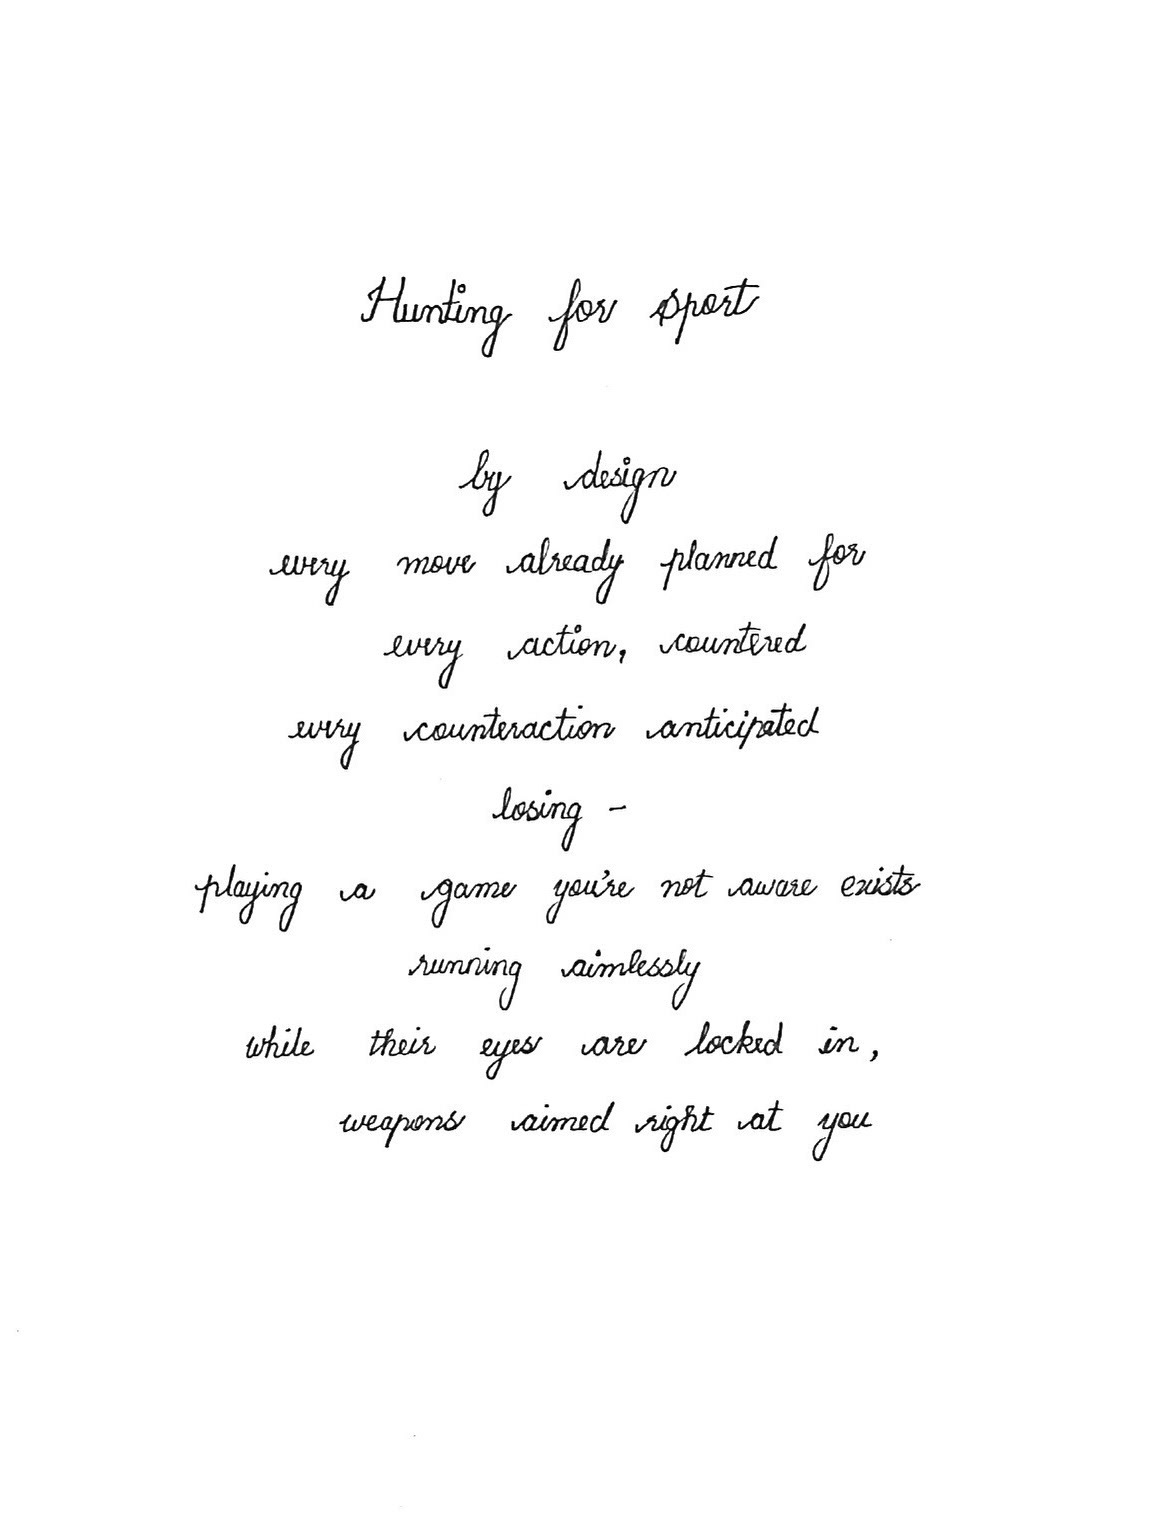 Hunting for sport
by design
every move already planned for
every action, countered
every counteraction anticipated
losing -
playing a game you're not aware exists
running aimlessly
while their eyes are locked in,
weapons aimed right at you